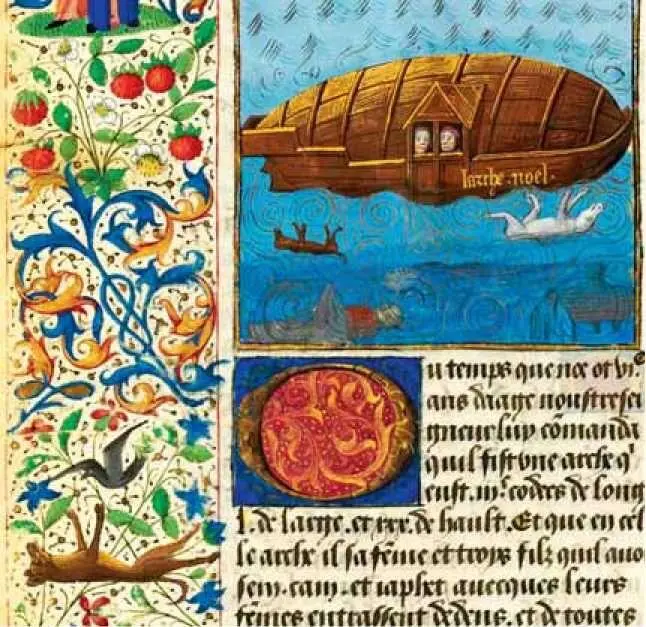 larche .noel.
u temps que noe ot vi.c
ans daage nostre sei
gneur luy cōmanda
quil fist vne arche q'
eust .iii.c coders de long
l. de large. et xxx. de hault. Et que en cel
le arche il sa fēme et troys filz quil auo
sem. cam. et iaphet auecques leurs
fēmes entrassent dedens. et de toutes